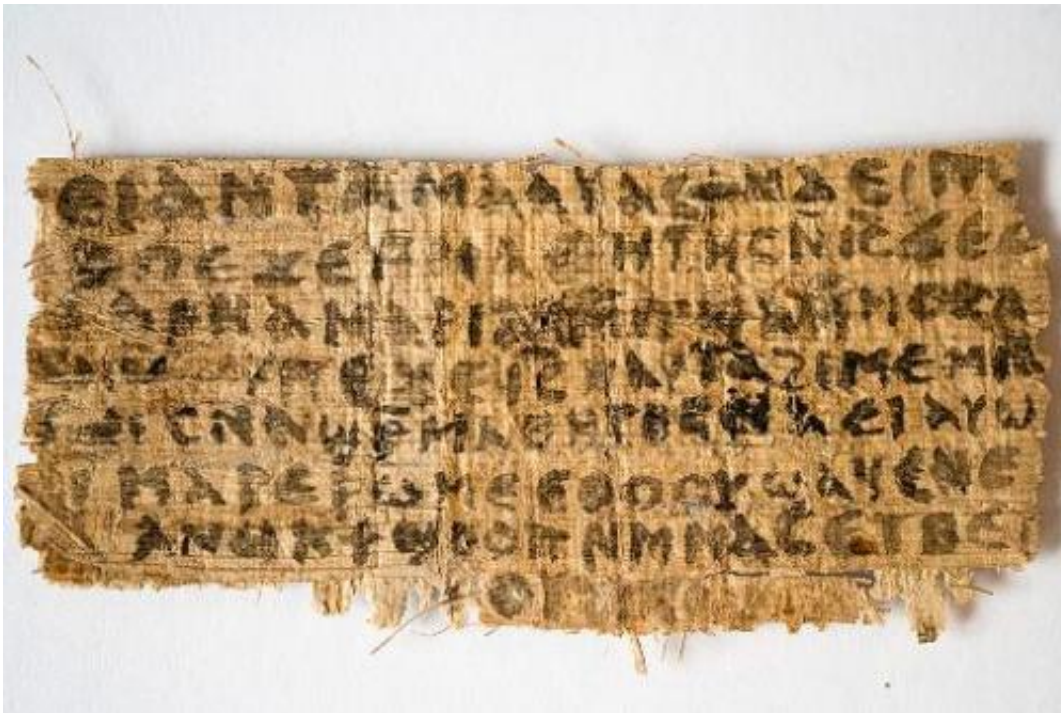 ⲉⲓⲁⲛⲧⲁⲙⲁⲁⲩⲁⲥϯⲛⲁⲉⲓⲡ
ⲡⲉϫⲉⲙⲙⲁⲑⲏⲧⲏⲥⲛⲓⲥϫⲉⲥ
ⲁⲣⲛⲁⲙⲁⲣⲓⲁⲙⲙⲡϣⲁⲙⲙⲟⲥⲁ
ⲡⲉϫⲉⲓⲥⲛⲁⲩⲧⲁϩⲓⲙⲉⲙⲛ
ⲥⲛⲁϣⲣⲙⲁⲑⲏⲧⲏⲥⲛⲁⲉⲓⲁⲩⲱ
ⲙⲁⲣⲉⲣⲱⲙⲉⲉⲑⲟⲟⲩϣⲁϥⲉⲛⲉ
ⲁⲛⲟⲕϯϣⲟⲟⲡⲛⲙⲙⲁⲥⲉⲧⲃⲉ